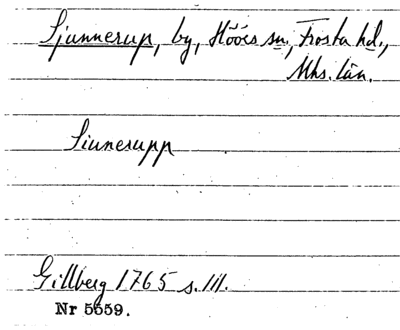 Sjunnerup, by, Höörs sn, Frosta hd.,
Mhs. län.
Siunerupp
Gillberg 1765 s. 111.
Nr 5559.